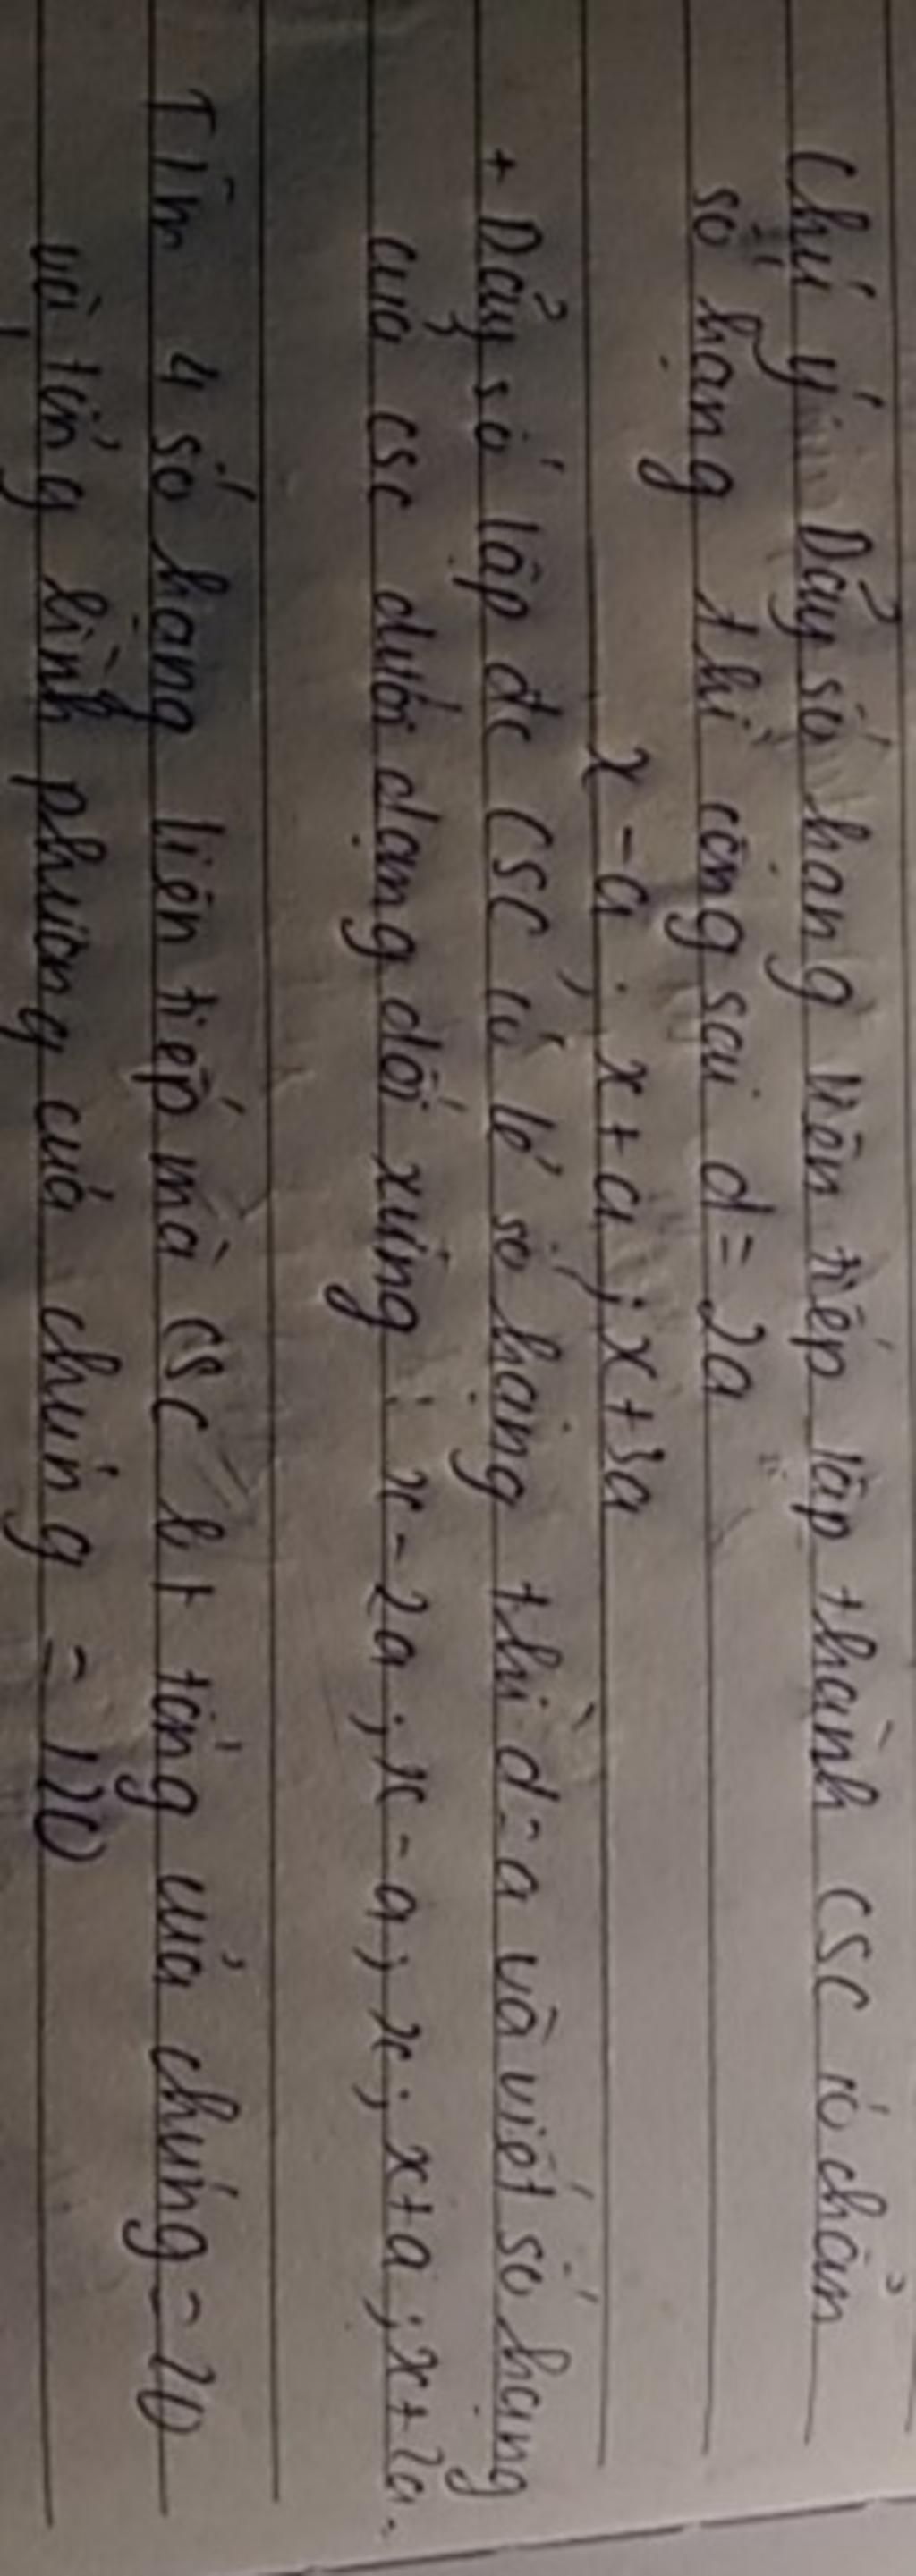 Chú ý: Dãy số hạng liên tiếp lập thành CSC có chẵn
số hạng thì công sai d = 2a
x - a ; x + a ; x + 3a
+ Dãy số lập đc CSC có lẻ số hạng thì d = a và viết số hạng
của CSC dưới dạng đối xứng : x - 2a ; x - a ; x ; x + a ; x + 2a .
Tìm 4 số hạng liên tiếp mà CSC bt tổng của chúng = 20
và tổng bình phương của chúng = 120